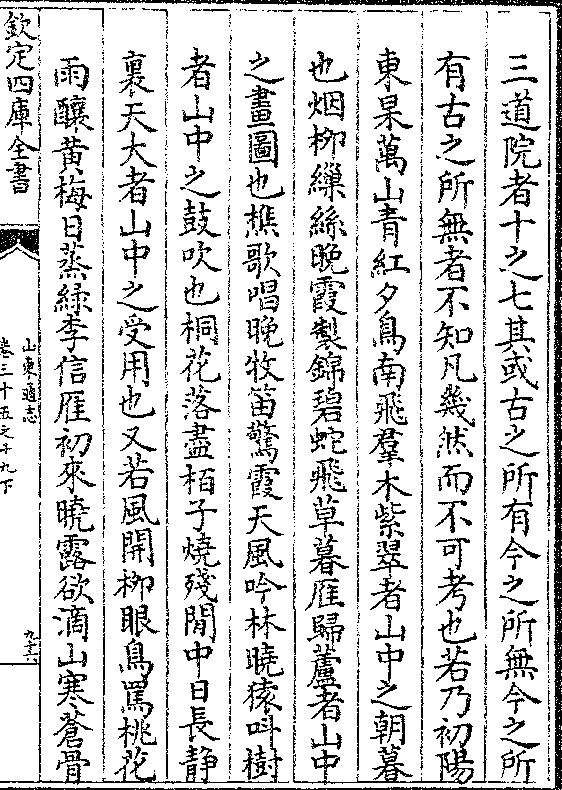 三道院者十之七其或古之所有今之所無今之所
有古之所無者不知凡幾然而不可考也若乃初陽
東杲萬山青紅夕鳥南飛羣木紫翠者山中之朝暮
也烟柳繰絲晚霞製錦碧蛇飛草暮雁歸蘆者山中
之畫圖也樵歌唱晚牧笛驚霞天風吟林曉猿呌樹
者山中之鼓吹也桐花落盡栢子燒殘閒中日長靜
裏天大者山中之受用也又若風開柳眼鳥罵桃花
雨釀黄梅日蒸緑李信雁初來曉露欲滴山寒蒼骨
欽定四庫全書
山東通志
卷三十五之十九下